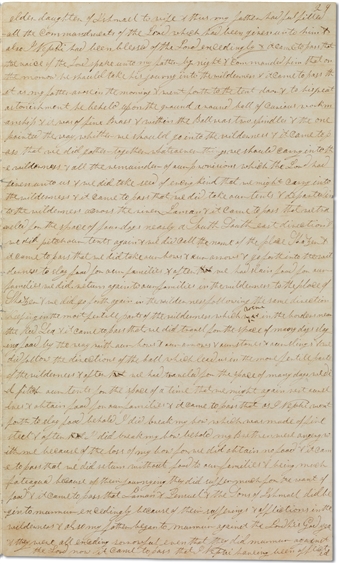 29
elder daughter of Ishmael to wife & thus my father had fulfilled
all the Commandments of the Lord which had been given unto him &
also I Nephi had been blessed of the Lord exceedingly & it came to pass that
the voice of the Lord spake unto my father by night & Commanded him that on
the morrow he should take his journey into the wilderness & it came to pass that
as my father arose in the morning & went forth to the tent door & to his great
astonishment he beheld upon the ground a round ball of curious workm
anship & it was of fine brass & within the ball was two spindles & the one
pointed the way whither we should go into the wilderness & it came to p
ass that we did gather together whatsoever things we should carry into the
wilderness & all the remainder of our provisions which the Lord had
given unto us & we did take seed of every kind that we might carry into
the wilderness & it came to pass that we did take our tents & departed in
to the wilderness across the river Laman & it came to pass that we tra
veled for the space of four days nearly a South South east direction &
we did pitch our tents again & we did call the name of the place Shazer &
it came to pass that we did take our bows & our arrows & go forth into the wil
derness to slay food for our families & after we had slain food for our
families we did return again to our families in the wilderness to the place of
Shazer & we did go forth again in the wilderness following the same direction
keeping in the most fertile parts of the wilderness which was in the borders near
the Red Sea & it came to pass that we did travel for the space of many days slay
ing food by the way with our bows & our arrows & our stones & our slings & we
did follow the directions of the ball which led us in the more fertile parts
of the wilderness & after we had traveled for the space of many days we di
d pitch our tents for the space of a time that we might again rest ourselves
& obtain food for our families & it came to pass that as I Nephi went
forth to slay food behold I did break my bow which was made of fine
steel & after I did break my bow behold my brethren were angry
with me because of the loss of my bow for we did obtain no food & it cam
e to pass that we did return without food to our families & being much
fatigued because of their journeying they did suffer much for the want of
food & it came to pass that Laman & Lemuel & the Sons of Ishmael did be
gin to murmur exceedingly because of their sufferings & afflictions in the
wilderness & also my father began to murmur against the Lord his God yea
& they were all exceeding sorrowful even that they did murmur against
the Lord now it came to pass that I Nephi having been afflicted